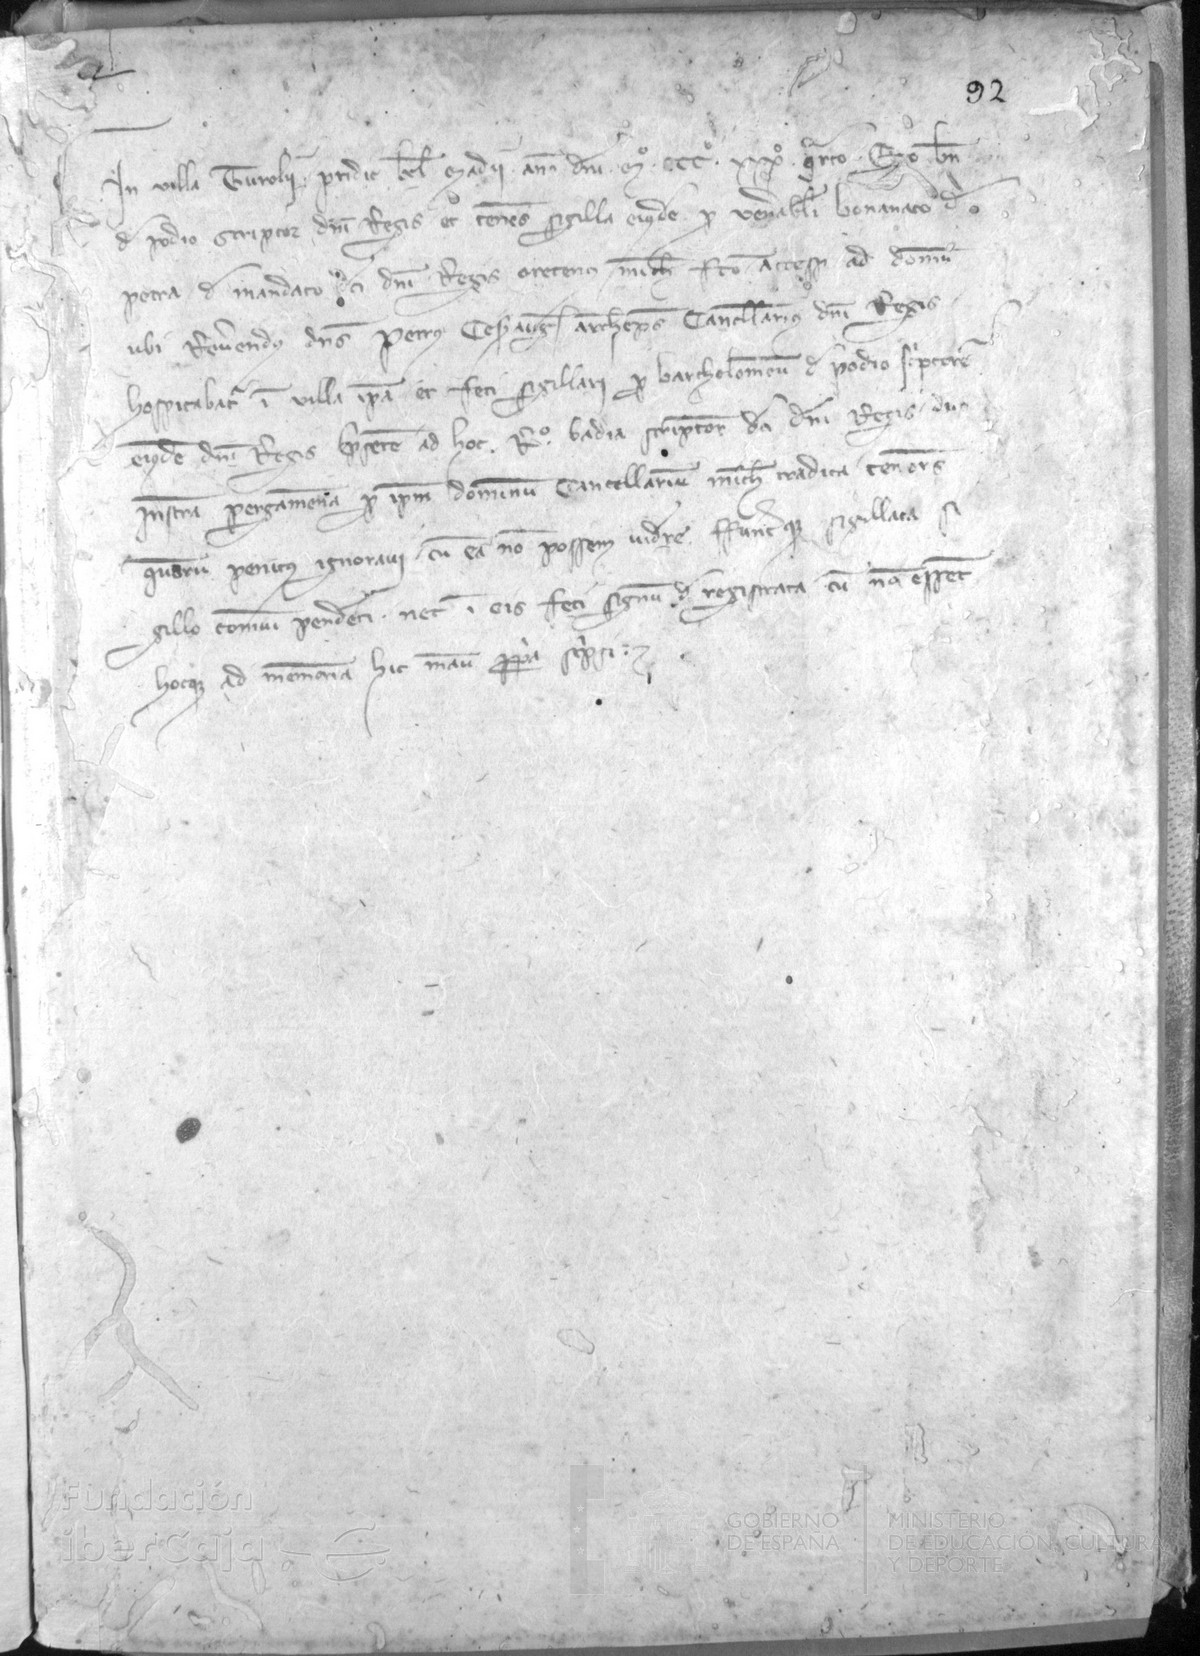 92
In villa Turolii pridie kl madii ann dni mº cccº xxxº qrto Ego bn
d podio scriptor dni Regis et tenes sigilla eiusde p venabli bonanato d
petra d mandato dci dni Regis oretenus mich fco accessi ad domu
ubi Reverendus dns Petrus Cesaug archieps Cancellarius dni Regis
hospitabat i villa ipa et feci sigillari p bartholomeu d podio scriptore
eiusde dni Regis psete ad hoc Rº badia scriptor dci dni Regis duo
instra pergamena p ipm dominu Cancellariu mich tradita tenors
quoru penitus ignoravi cu ea no possem videre ffuntque sigillata si
gillo comuni pendeti nec i eis feci signu d registrata cu no essent
hocque ad memoria hic manu ppa scripsi
Fundación
iberCaja
GOBIERNO
DE ESPAÑA
MINISTERIO
DE EDUCACIÓN, CULTURA
Y DEPORTE